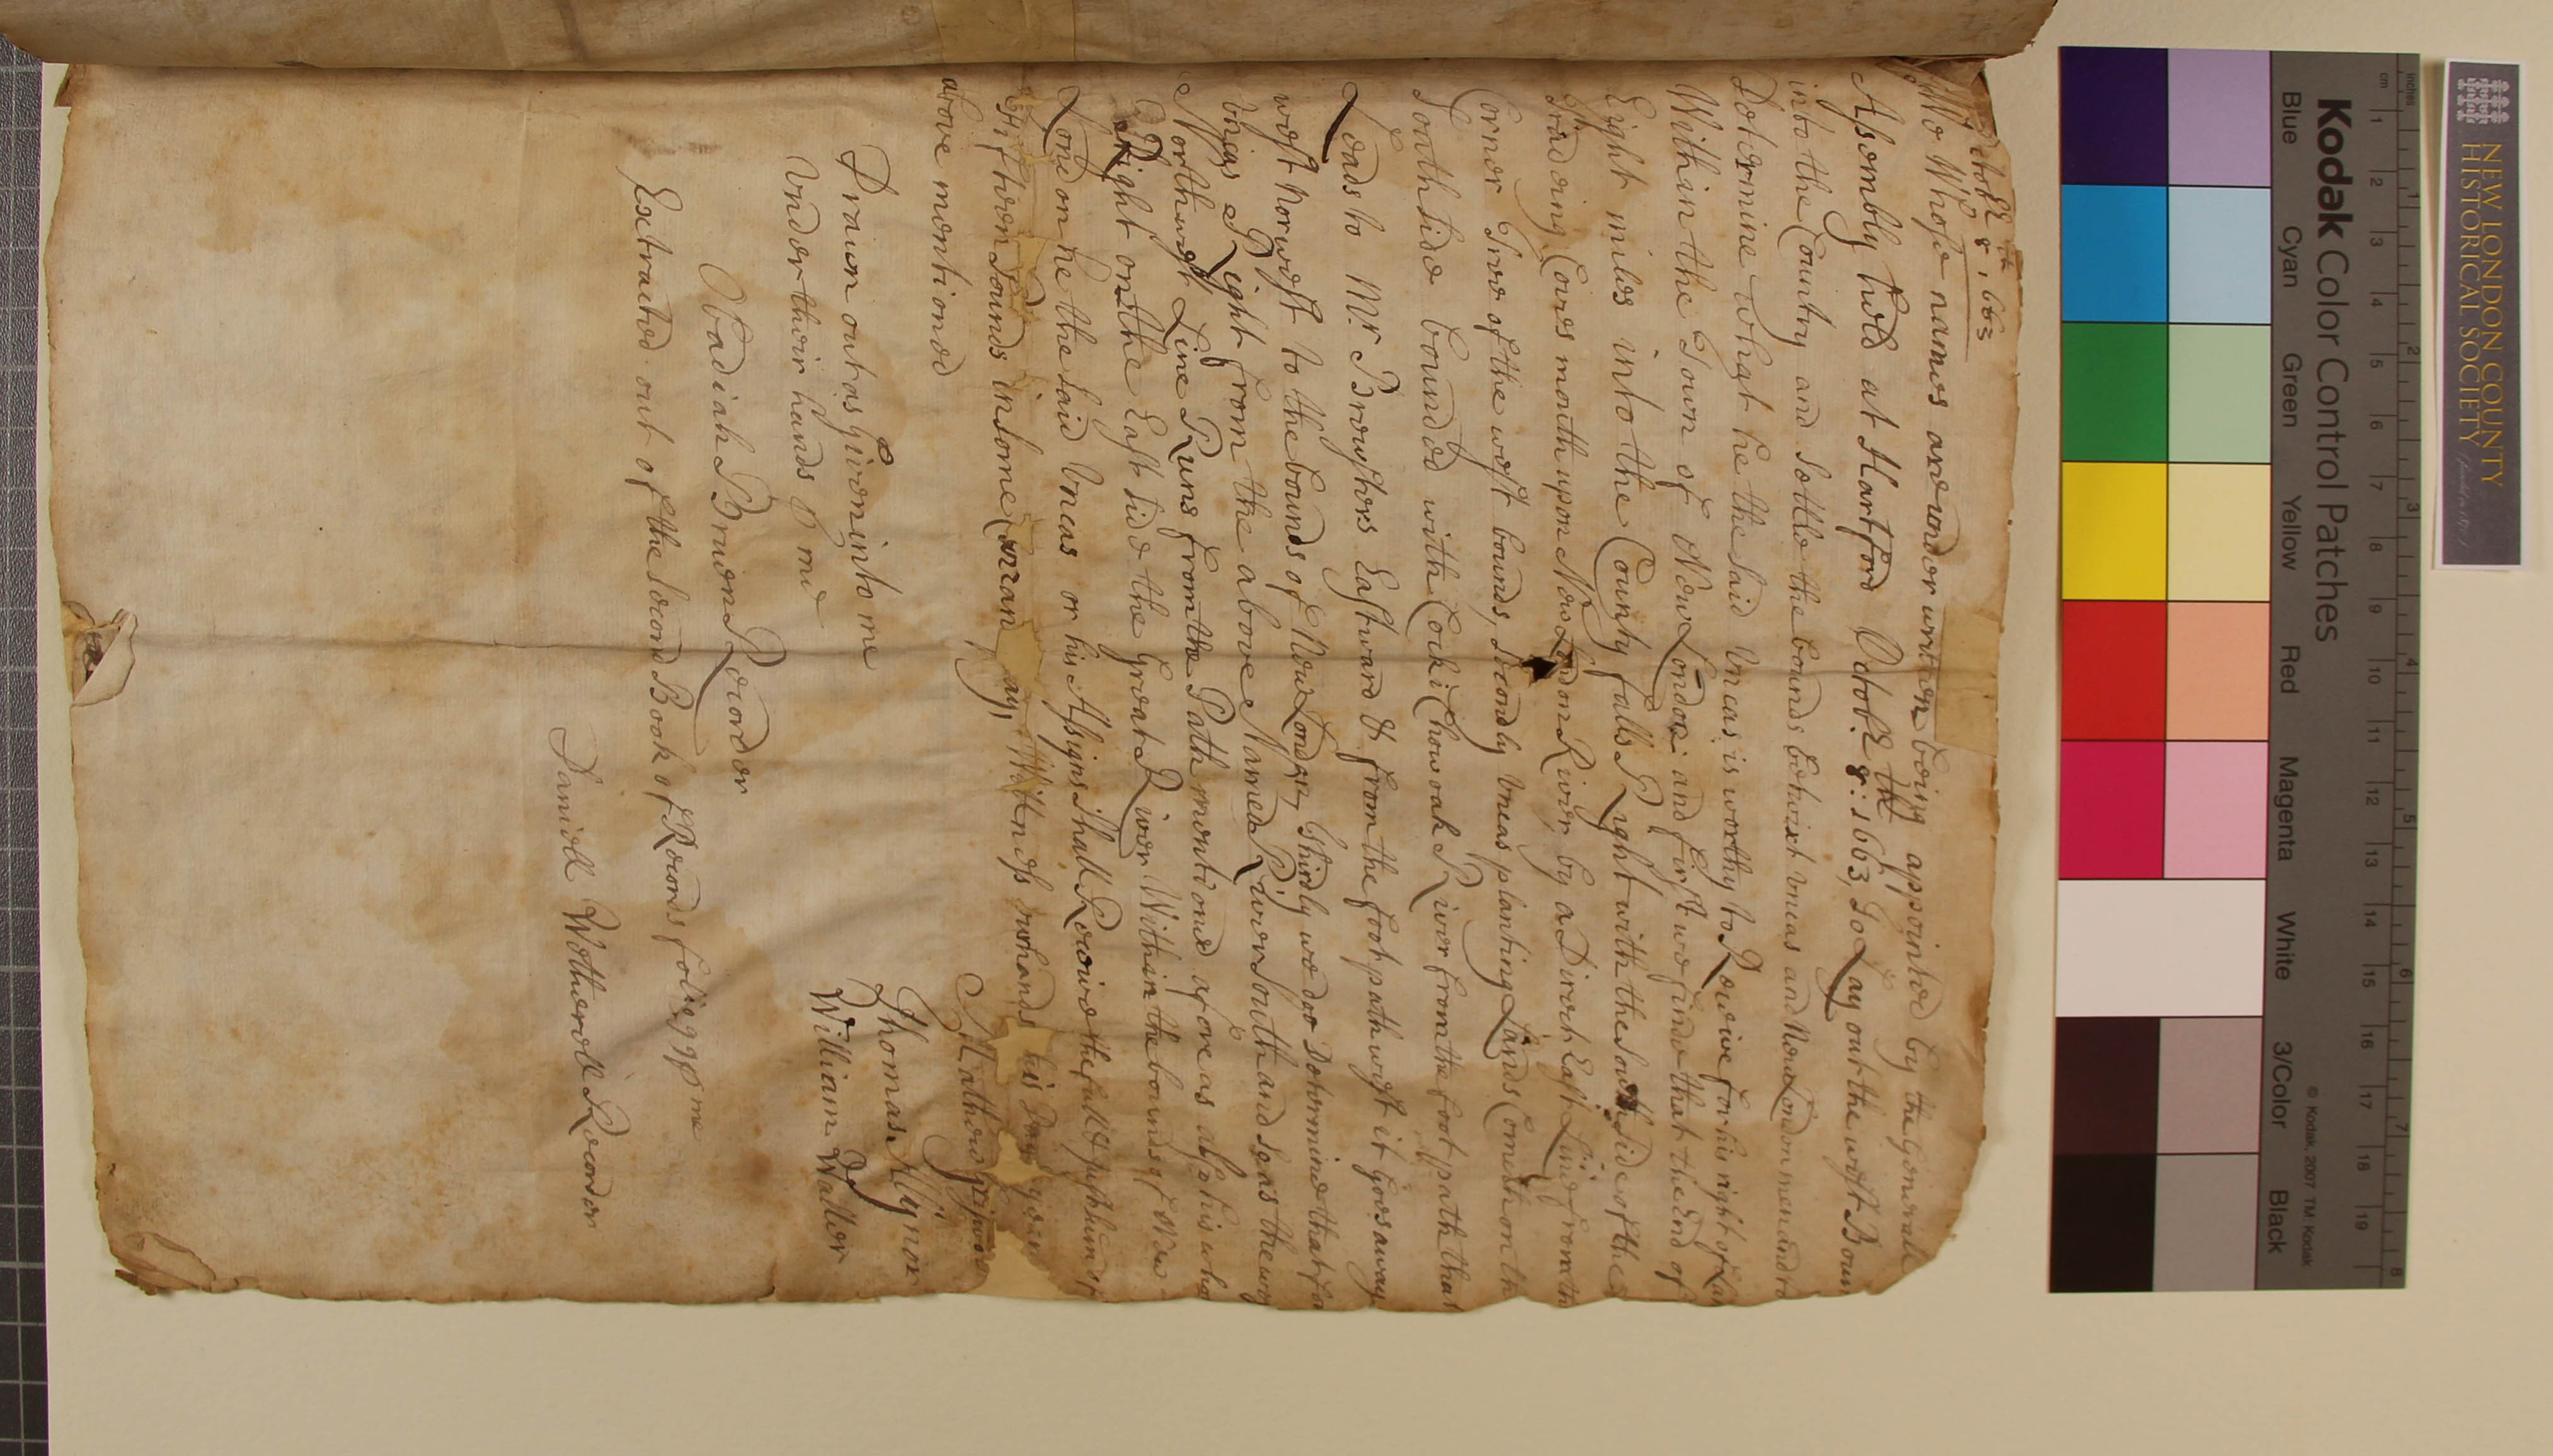 Octobr 8th 1663
Wo Whose names are under written being appointed by the Generall
Assembly held at Hartford Octobr the 8: 1663, To Lay out the west Boun
into the Country and Settle the bounds betwixt Uncas and New London men and to
Determine What he the said Uncas is worthy to Receive for his right of La
Within the Town of New London: and first we finde that the End of
Eight miles into the County falls Right with the South side of the
Trading Coves mouth upon New London River by a Direct East Line from th
Corner Tree of the west bounds, Secondly Uncas planting Lands Cometh on th
South side bounded with Cocki Chowoak River from the foot path that
Leads to Mr Browsters Eastward & from the foot path west it Goes away
west Norwest to the bounds of New London, Thirdly we doe Determine that fo
Uncas Right from the above Named River South and so as the
Northwest Line Runs from the Path mentioned afore as also his who
Right on the East side the Great River Within the bounds of New
Londone he the said Uncas or his Assigns Shall Receive the full & Just Sum of
fifteen Pounds in some Curran pay, Witness our hands this Day
above mentioned
Mathew
Thomas Allynor
William Waller
Drawn out as given into me
Under their hands p me
Obadiah Bruen Recorder
Extracted out of the Second Book of Records folio 99 p me
Daniell Wetherell Recorder
NEW LONDON COUNTY
HISTORICAL SOCIETY
Kodak Color Control Patches
© Kodak, 2007 TM: Kodak
Blue Cyan Green Yellow Red Magenta White 3/Color Black
inches 1 2 3 4 5 6 7 8
cm 1 2 3 4 5 6 7 8 9 10 11 12 13 14 15 16 17 18 19